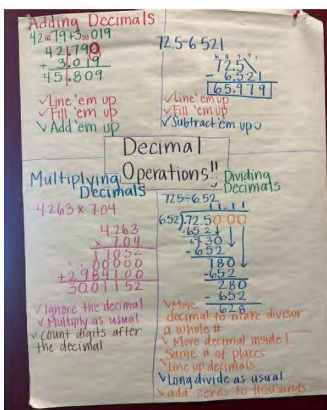 Adding Decimals
42.79+3.019
42.790
+ 3.019
45.809
✓Line 'em up
✓Fill 'em up
✓Add 'em up
72.5-6.521
72.5
- 6.521
65.979
✓Line 'em up
✓Fill 'em up
✓Subtract 'em up
Decimal
Operations!!
Multiplying
Decimals
4.263 x 7.04
4.263
x 7.04
17052
00000
+2984100
3001152
✓Ignore the decimal
✓Multiply as usual
✓count digits after
the decimal
Dividing
Decimals
72.5÷6.52
11.11
652)72.50.00
-652
730
-652
780
-652
280
-652
628
✓Move
decimal to make divisor
a whole #
✓Move decimal made 1
Same # of places
✓Line up decimals
✓Long divide as usual
✓add zeros to thousands